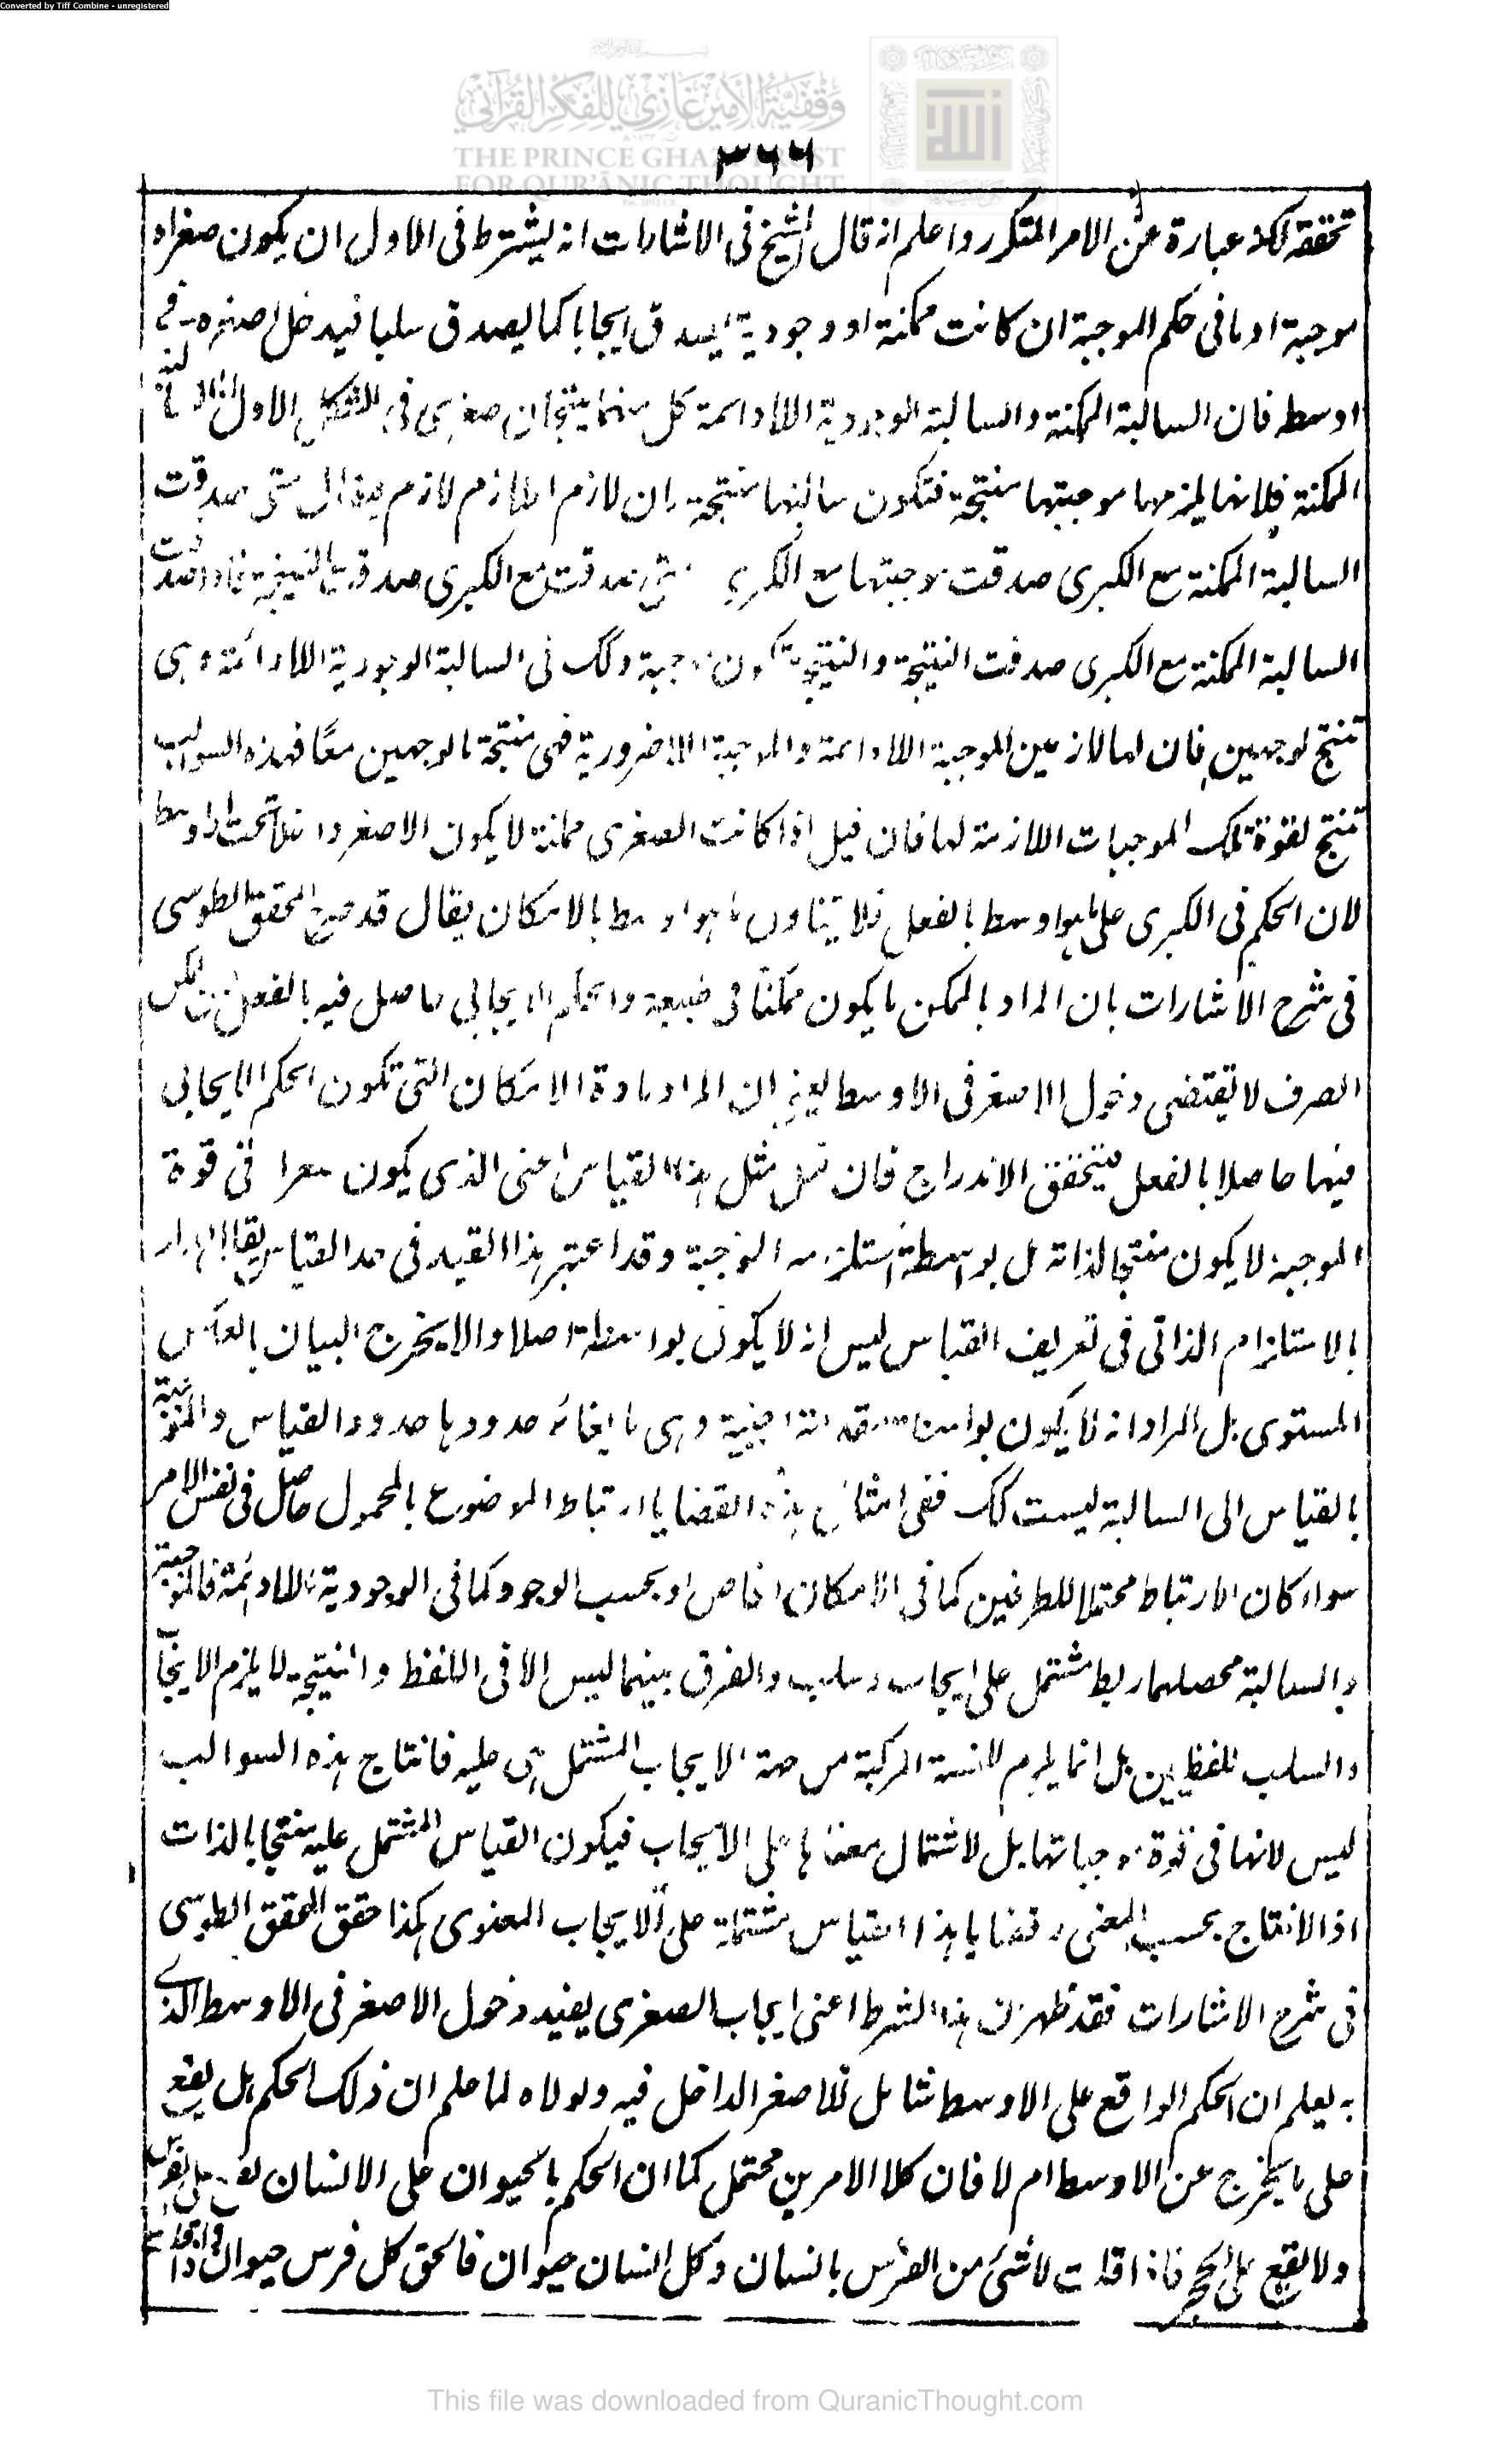 Converted by Tiff Combine - unregistered
وقفية الأمير غازي للفكر القرآني
THE PRINCE GHAZI TRUST
FOR QUR'ĀNIC THOUGHT
٣٦٦
تحققه لكنه عبارة عن الامر المتكرر واعلم انه قال الشيخ فى الاشارات انه يشترط فى الاول ان يكون صغراه
موجبة او ما فى حكم الموجبة ان كانت ممكنة او وجودية يصدق ايجابا كما يصدق سلبا فيدخل اصغره فى
اوسطه فان السالبة الممكنة والسالبة الوجودية اللادائمة كل منهما ينتجان صغرى فى الشكل الاول
الممكنة فلانها يلزمها موجبتها منتجة فتكون سالبتها منتجة لان لازم اللازم لازم متى صدقت
السالبة الممكنة مع الكبرى صدقت موجبتها مع الكبرى متى صدقت مع الكبرى صدقت النتيجة فاذا صدقت
السالبة الممكنة مع الكبرى صدقت النتيجة والنتيجة تكون موجبة وكك فى السالبة الوجودية اللادائمة وهى
تنتج لوجهين فان لها لازمين الموجبة اللادائمة والموجبة اللاضرورية فهى منتجة بالوجهين معًا فهذه السوالب
تنتج لقوة تلك الموجبات اللازمة لها فان قيل اذا كانت الصغرى ممكنة لا يكون الاصغر داخلا تحت الاوسط
لان الحكم فى الكبرى على ما هو اوسط بالفعل فلا يتناول ما هو اوسط بالامكان يقال قد صرح المحقق الطوسى
فى شرح الاشارات بان المراد بالممكن ما يكون ممكنا فى طبيعه والحكم الايجابى حاصل فيه بالفعل فان الممكن
الصرف لا تقتضى دخول الاصغر فى الاوسط يعنى ان المراد مادة الامكان التى تكون الحكم الايجابى
فيها حاصلا بالفعل فيتحقق الاندراج فان قيل مثل هذا القياس اعنى الذى يكون صغراه فى قوة
الموجبة لا يكون منتجا لذاته بل بواسطة استلزامه الموجبة وقد اعتبر هذا القيد فى حد القياس يقال المراد
بالاستلزام الذاتى فى تعريف القياس ليس انه لا يكون بواسطة اصلا والا يخرج البيان بالعكس
المستوى بل المراد انه لا يكون بواسطة مقدمة اجنبية وهى ما يغائر حدودها حدود القياس والموجبة
بالقياس الى السالبة ليست كك ففى امثال هذه القضايا ارتباط الموضوع بالمحمول حاصل فى نفس الامر
سواء كان الارتباط محتملا للطرفين كما فى الامكان الخاص او بحسب الوجود كما فى الوجودية اللادائمة فالموجبة
والسالبة محصلهما ربط مشتمل على ايجاب وسلب والفرق بينهما ليس الا فى اللفظ والنتيجة لا يلزم الايجاب
والسلب للفظيين بل انما يلزم للنسبة المركبة من جهة الايجاب المشتمل هى عليه فانتاج هذه السوالب
ليس لانها فى قوة موجباتها بل لاشتمال معناها على الايجاب فيكون القياس المشتمل عليه منتجا بالذات
اذ الانتاج بحسب المعنى وقضايا هذا القياس مشتملة على الايجاب المعنوى هكذا حقق المحقق الطوسى
فى شرح الاشارات فقد ظهر ان هذا الشرط اعنى ايجاب الصغرى يفيد دخول الاصغر فى الاوسط الذى
به يعلم ان الحكم الواقع على الاوسط شامل للاصغر الداخل فيه ولولاه لما علم ان ذلك الحكم هل يقع
على ما يخرج عن الاوسط ام لا فان كلا الامرين محتمل كما ان الحكم بالحيوان على الانسان يقع على الفرس
ولا يقع على الحجر فاذا قلت لا شئ من الفرس بانسان وكل انسان حيوان فالحق كل فرس حيوان واذا
This file was downloaded from QuranicThought.com